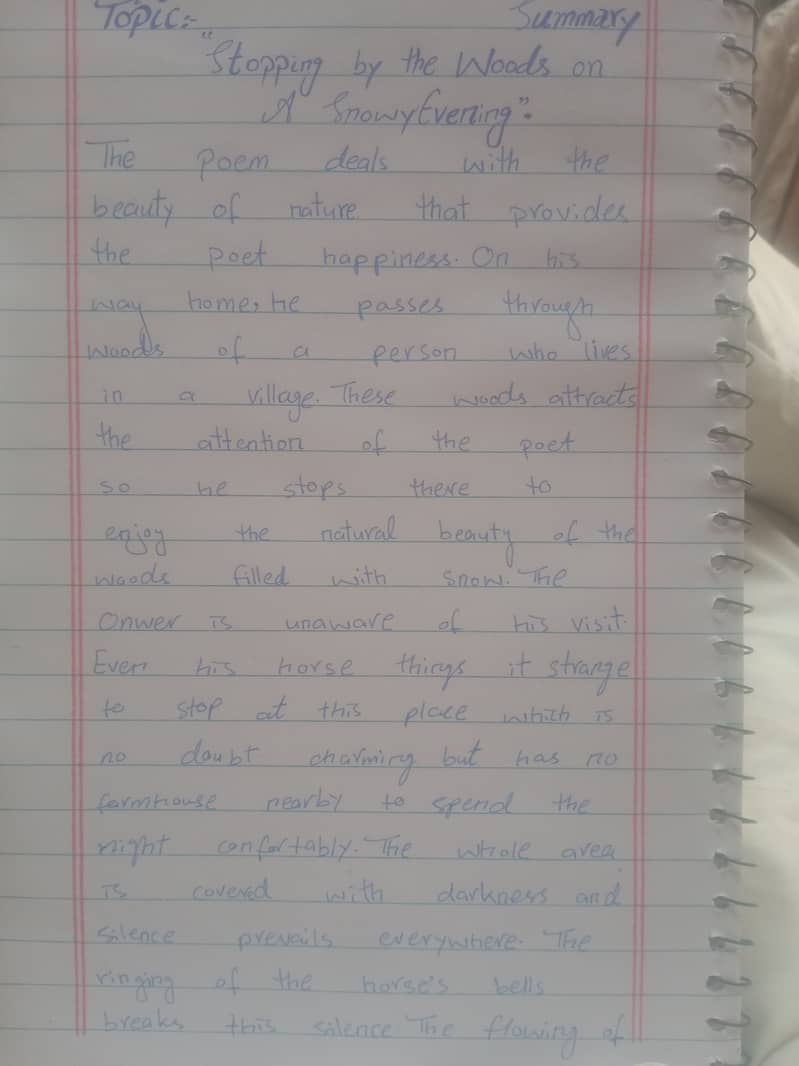 Topic:- Summary
"Stopping by the Woods on
A Snowy Evening".
The poem deals with the
beauty of nature that provides
the poet happiness. On his
way home, he passes through
woods of a person who lives
in a village. These woods attracts
the attention of the poet
so he stops there to
enjoy the natural beauty of the
woods filled with snow. The
Onwer is unaware of his visit.
Even his horse things it strange
to stop at this place which is
no doubt charming but has no
farmhouse nearby to spend the
night confortably. The whole area
is covered with darkness and
silence prevails everywhere. The
ringing of the horse's bells
breaks this silence The flowing of